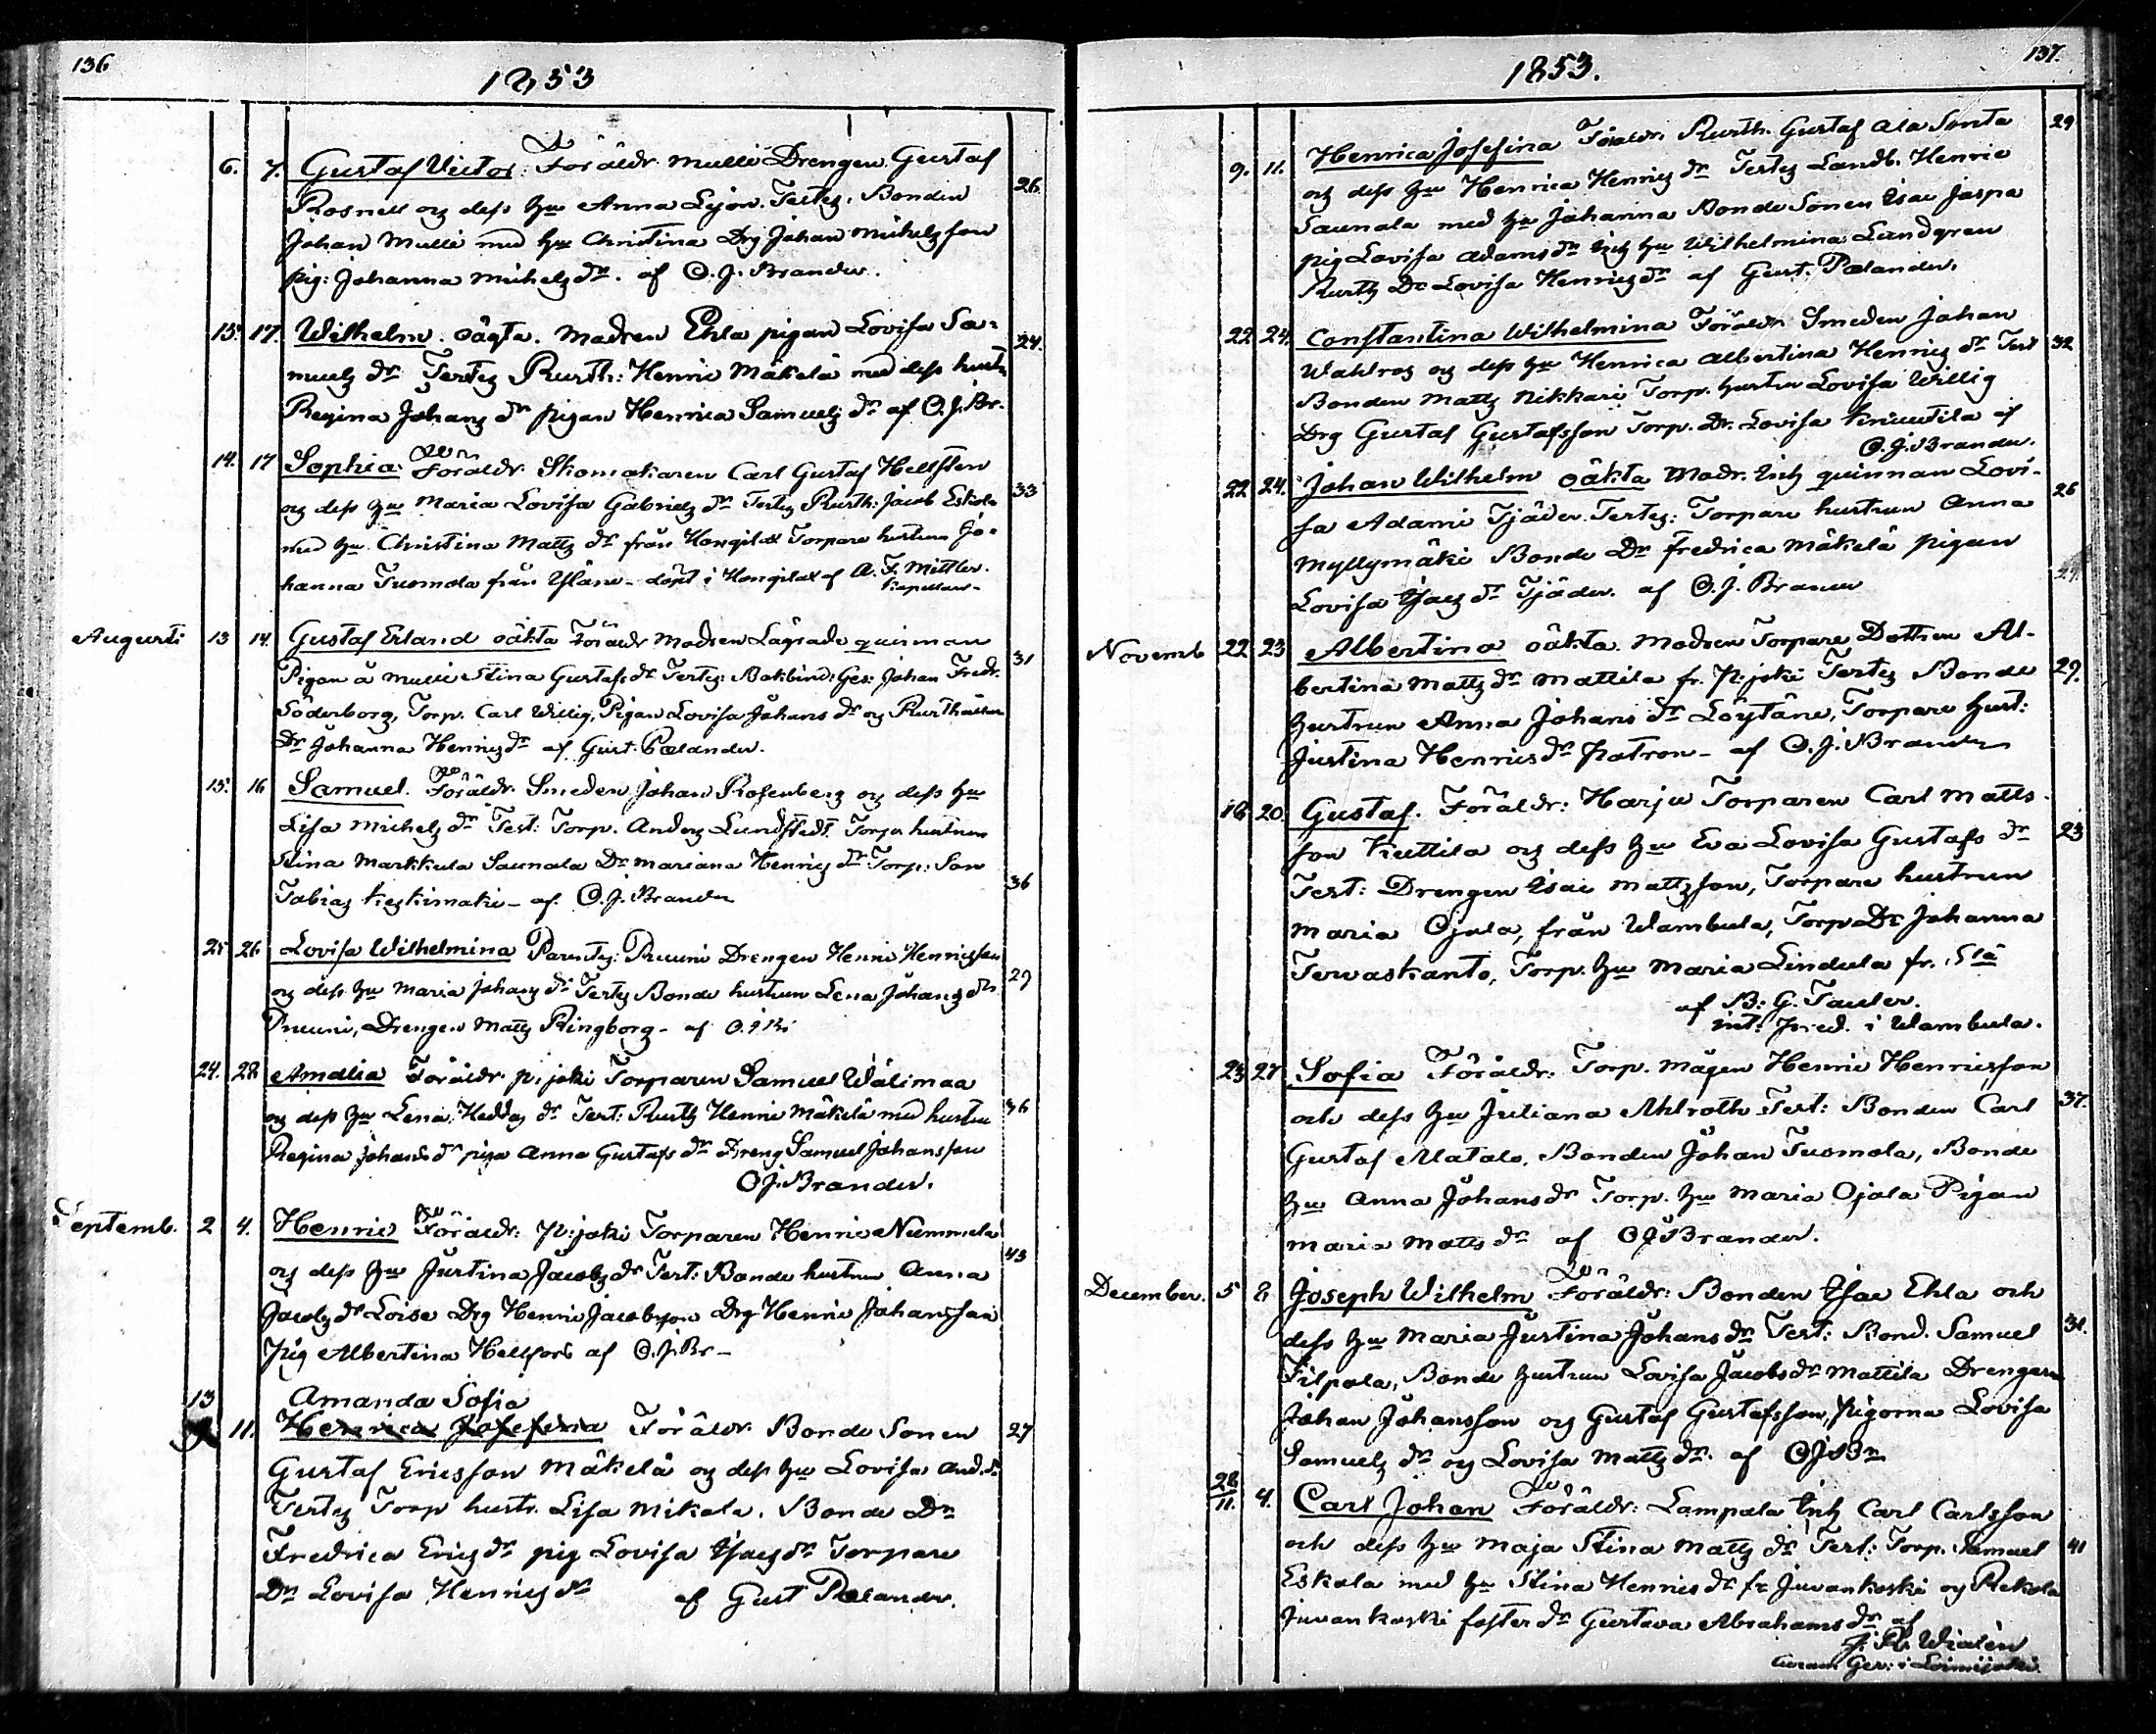 136
1853
6. 7. Gustaf Victor. Föräldr. Mulli Drengen Gustaf 26.
Rosnell og dess hu Anna Lejon. Testes. Bonden
Johan Mulli med hu Christina Drg Johan Michelsson
pig: Johanna Michelsdr. af C. J. Brander.
15. 17. Wilhelm. oägta. Modren Ehla pigan Lovisa Sa- 24.
muels dr Testes Rusth: Henric Mäkelä med dess hustr
Regina Johans dr pigan Henrica Samuels dr af C. J. Br.
14. 17 Sophia. Föräldr. Skomakaren Carl Gustaf Hellsten
og dess hu Maria Lovisa Gabriels dr Testes Rusth: Jacob Eskola 33
med hu Christina Matts dr från Hongilax Torpare hustrun Jo-
hanna Tuomola från Yläne - döpt i Hongilax af A. F. Mittler.
Kapellan-
Augusti 13 14. Gustaf Erland oäkta Föräldr Modren Lägrade quinnan
Pigan å Mulli Stina Gustafsdr Testes: Bokbind: Ges: Johan Fredr. 31
Söderborg, Torp. Carl Willig, Pigan Lovisa Johans dr og Rusthållar
Dr Johanna Henrics dr af Gust. Pælander.
15. 16 Samuel. Föräldr. Smeden Johan Rosenberg og dess hu
Lisa Michels dr Test: Torp. Anders Lundstedt Torpa hustrun
Stina Markkula Saunala Dr Mariana Henrics dr Torp: Son
Tobias Keskimäki - af C. J. Brander 36
25 26 Lovisa Wilhelmina Parentes: Pruuni Drengen Henric Henricsson
og dess hu Maria Johans dr Testes Bonde hustrun Lena Johans dr. 29
Pruuni, Drengen Matts Ringborg - af C. J. Br
24. 28 Amalia Föräldr. P:joki Torparen Samuel Wälimaa
og dess hu Lena Heddas dr Test: Rusth Henric Mäkelä med hustru 36
Regina Johans dr piga Anna Gustafs dr Dreng Samuel Johansson
C J. Brander.
Septemb. 2 4. Henric Föräldr: P:joki Torparen Henric Niemmelä
og dess hu Justina Jacobs dr Test: Bonde hustrun Anna 43
Jacobs dr Loise Drg Henric Jacobsson Drg Henric Johansson
Pig Albertina Hellfors af C. J. Br -
13 Amanda Sofia
9 11. Henrica Josefina Föräldr. Bonde Sonen 27
Gustaf Ericsson Mäkelä og dess hu Lovisa And.dr
Testes Torp hustr. Lisa Mikola. Bonde Dr
Fredrica Erics dr pig Lovisa Isacs dr Torpare
Dr Lovisa Henrics dr af Gust Pælander.
1853.
137.
9. 11. Henrica Josefina Föräldr. Rusth. Gustaf Ala Sonta 29
og dess hu Henrica Henrics dr Testes Landb. Henric
Saunala med hu Johanna Bonde Sonen Isac Jaspa
pig Lovisa Adams dr Inh hu Wilhelmina Lundgren
Rusth Dr Lovisa Henrics dr af Gust. Pælander.
22 24. Constantina Wilhelmina Föräldr Smeden Johan
Wahlros og dess hu Henrica Albertina Henrics dr Test 32
Bonden Matts Nikkari Torp. hustrun Lovisa Willig
Drg Gustaf Gustafsson Torp. Dr. Lovisa af
C. J. Brander.
22 24. Johan Wilhelm oäkta Modr. Inh quinnan Lovi- 26
sa Adami Tjäder. Testes: Torpare hustrun Anna
Myllymäki Bonde Dr Fredrica Mäkelä pigan
Lovisa Isacs dr Tjäder. af C. J. Brander
Novemb 22 23 Albertina oäkta. Modren Torpare Dottren Al-
bertina Matts dr Mattila fr. P:joki Testes Bonde 29.
hustrun Anna Johans dr Löytäne, Torpare hust:
Justina Henrics dr Patron - af C. J. Brander
18 20. Gustaf. Föräldr: Harju Torparen Carl Matts-
son Kuttila og dess hu Eva Lovisa Gustafs dr 23
Test: Drengen Isac Mattsson, Torpare hustrun
Maria Ojala, från Wambula, Torp Dr Johanna
Terwaskanto, Torp. hu Maria Lindula fr.
af B: G. Tauler.
int. Pred. i Wambula.
23 27 Sofia Föräldr: Torp. Mågen Henric Henricsson
och dess hu Juliana Ahlroth Test: Bonden Carl 37.
Gustaf Alatalo, Bonden Johan Tuomola, Bonde
hu Anna Johans dr Torp. hu Maria Ojala Pigan
Maria Matts dr af C J Brander.
December. 5 8 Joseph Wilhelm Föräldr: Bonden Isac Ehla och
dess hu Maria Justina Johans dr Test: Bond. Samuel 31.
Filpola, Bonde hustrun Lovisa Jacobs dr Mattila Drengarne
Johan Johansson og Gustaf Gustafsson, Pigorna Lovisa
Samuels dr og Lovisa Matts dr. af C J Br
28/11. 4. Carl Johan Föräldr: Lampala Inh Carl Carlsson
och dess hu Maja Stina Matts dr Test: Torp. Samuel 41
Eskola med hu Stina Henrics dr fr Juvankoski og Rekola
Juvankoski foster dr Gustava Abrahams dr af
Wialén
Ger: i Loimijoki.